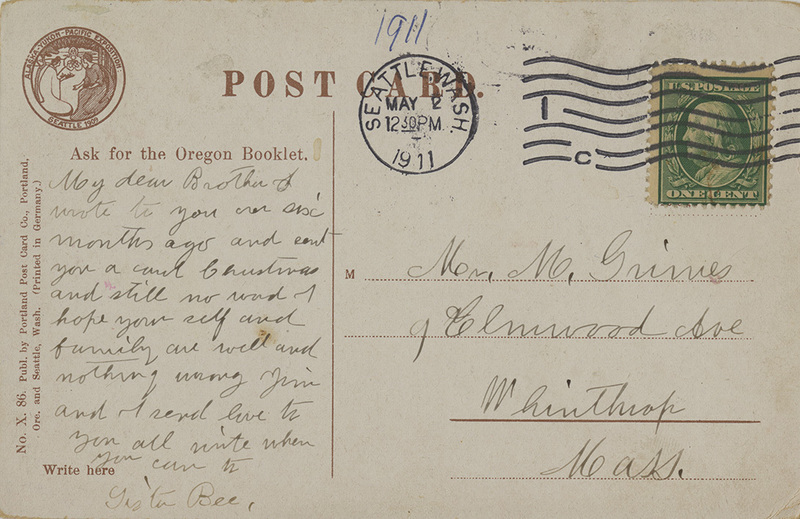 1911
ALASKA·YUKON·PACIFIC EXPOSITION
SEATTLE 1909
POST CARD.
SEATTLE, WASH.
MAY 2
12 30 PM
1911
1
C
U.S. POSTAGE
ONE CENT
Ask for the Oregon Booklet.
No. X. 86. Publ. by Portland Post Card Co., Portland,
Ore. and Seattle, Wash. (Printed in Germany.)
My dear Brother I
wrote to you over six
months ago and sent
you a card Cristmas
and still no word I
hope your self and
family are well and
nothing wrong Jim
and I send love to
you all write when
you can to
Sister Bee,
Write here
M
Mr. M. Grimes
9 Elmwood Ave
Whinthrop
Mass.